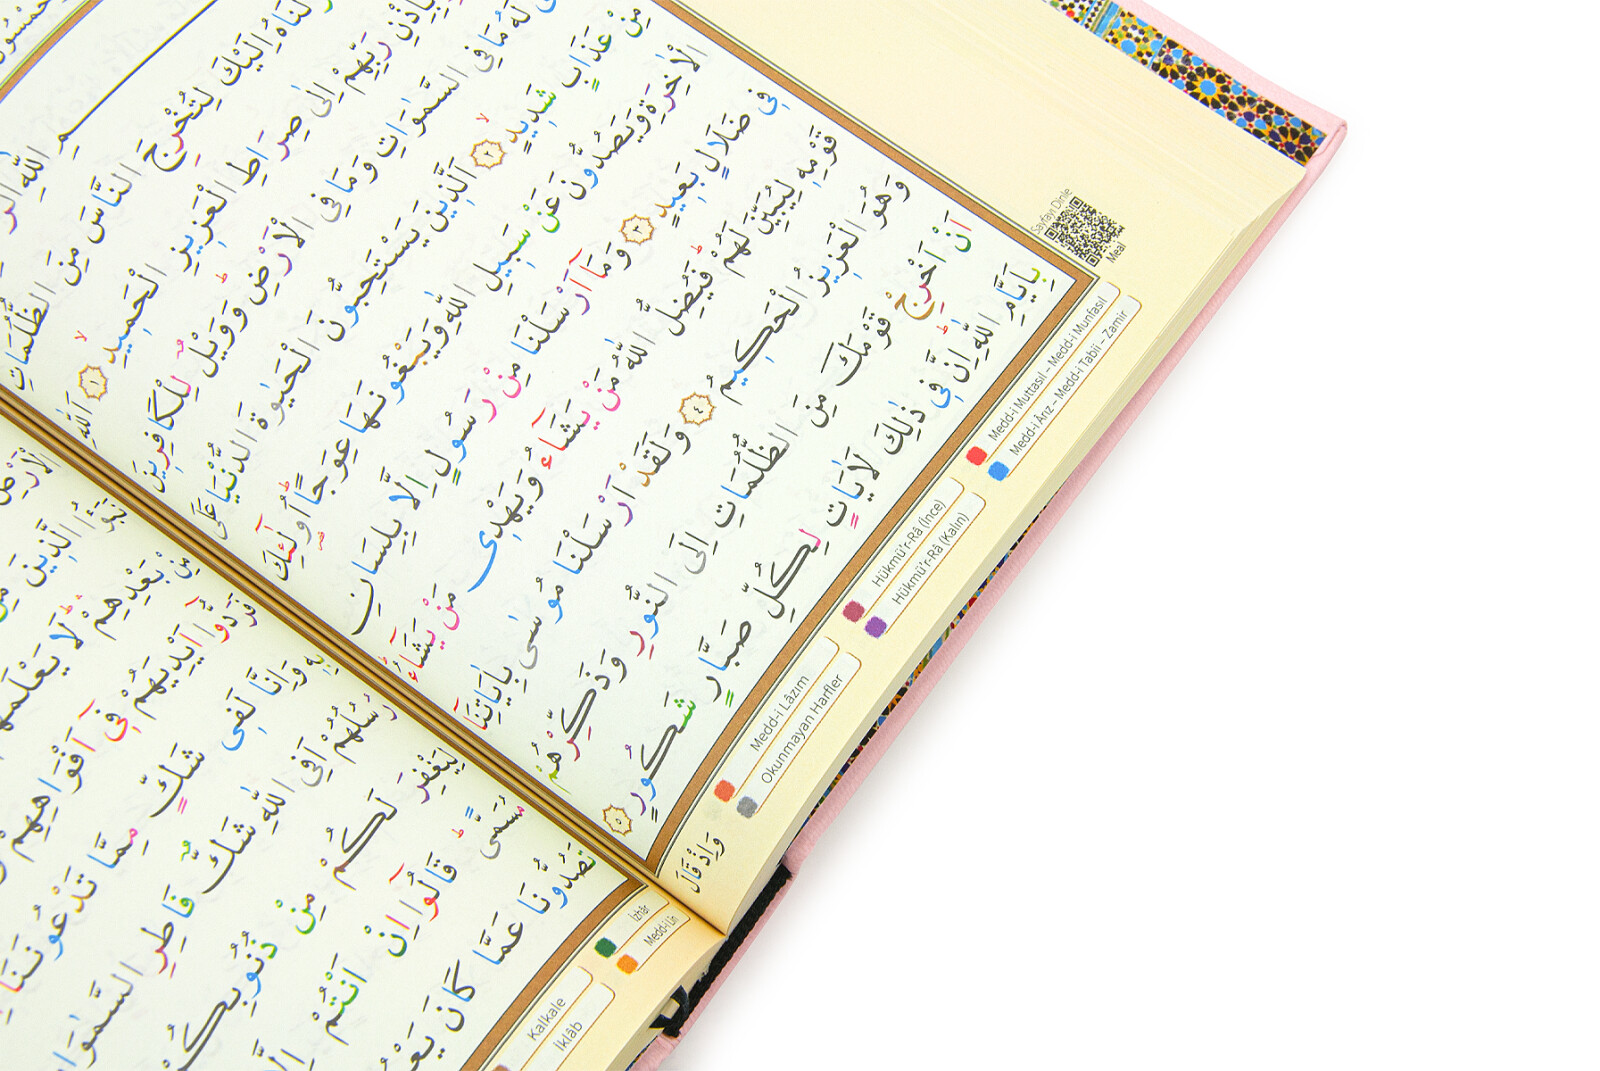 اِلَيْكَ لِتُخْرِجَ النَّاسَ مِنَ الظُّلُمَاتِ
بِاِذْنِ رَبِّهِمْ اِلٰى صِرَاطِ الْعَزِيزِ الْحَمِيدِۙ ﴿١﴾ اَللّٰهِ
لَهُ مَا فِي السَّمٰوَاتِ وَمَا فِي الْاَرْضِۜ وَوَيْلٌ لِلْكَافِرِينَ
مِنْ عَذَابٍ شَدِيدٍۙ ﴿٢﴾ اَلَّذِينَ يَسْتَحِبُّونَ الْحَيٰوةَ الدُّنْيَا عَلَى
الْاٰخِرَةِ وَيَصُدُّونَ عَنْ سَبِيلِ اللّٰهِ وَيَبْغُونَهَا عِوَجًاۜ اُو۬لٰٓئِكَ
فِي ضَلَالٍ بَعِيدٍ ﴿٣﴾ وَمَٓا اَرْسَلْنَا مِنْ رَسُولٍ اِلَّا بِلِسَانِ
قَوْمِهِ لِيُبَيِّنَ لَهُمْۜ فَيُضِلُّ اللّٰهُ مَنْ يَشَٓاءُ وَيَهْدِي مَنْ يَشَٓاءُ
وَهُوَ الْعَزِيزُ الْحَكِيمُ ﴿٤﴾ وَلَقَدْ اَرْسَلْنَا مُوسٰى بِاٰيَاتِنَٓا
اَنْ اَخْرِجْ قَوْمَكَ مِنَ الظُّلُمَاتِ اِلَى النُّورِ وَذَكِّرْهُمْ
بِاَيَّامِ اللّٰهِۜ اِنَّ فِي ذٰلِكَ لَاٰيَاتٍ لِكُلِّ صَبَّارٍ شَكُورٍ ﴿٥﴾
وَاِذْ قَالَ
Sayfayı Dinle
Meal
Medd-i Muttasıl – Medd-i Munfasıl
Medd-i Ârız – Medd-i Tabii – Zâmir
Hükmü'r-Râ (İnce)
Hükmü'r-Râ (Kalın)
Medd-i Lâzım
Okunmayan Harfler
الَّذِينَ مِنْ
مِنْ بَعْدِهِمْ لَا يَعْلَمُهُمْ
فَرَدُّٓوا اَيْدِيَهُمْ فِٓي اَفْوَاهِهِمْ
بِهِ وَاِنَّا لَفِي شَكٍّ مِمَّا تَدْعُونَنَٓا
رُسُلُهُمْ اَفِي اللّٰهِ شَكٌّ فَاطِرِ السَّمٰوَاتِ
لِيَغْفِرَ لَكُمْ مِنْ ذُنُوبِكُمْ
مُسَمًّىۜ قَالُٓوا اِنْ اَنْتُمْ اِلَّا
تَصُدُّونَا عَمَّا كَانَ يَعْبُدُ
İzhâr
Medd-i Lîn
Kalkale
İklâb